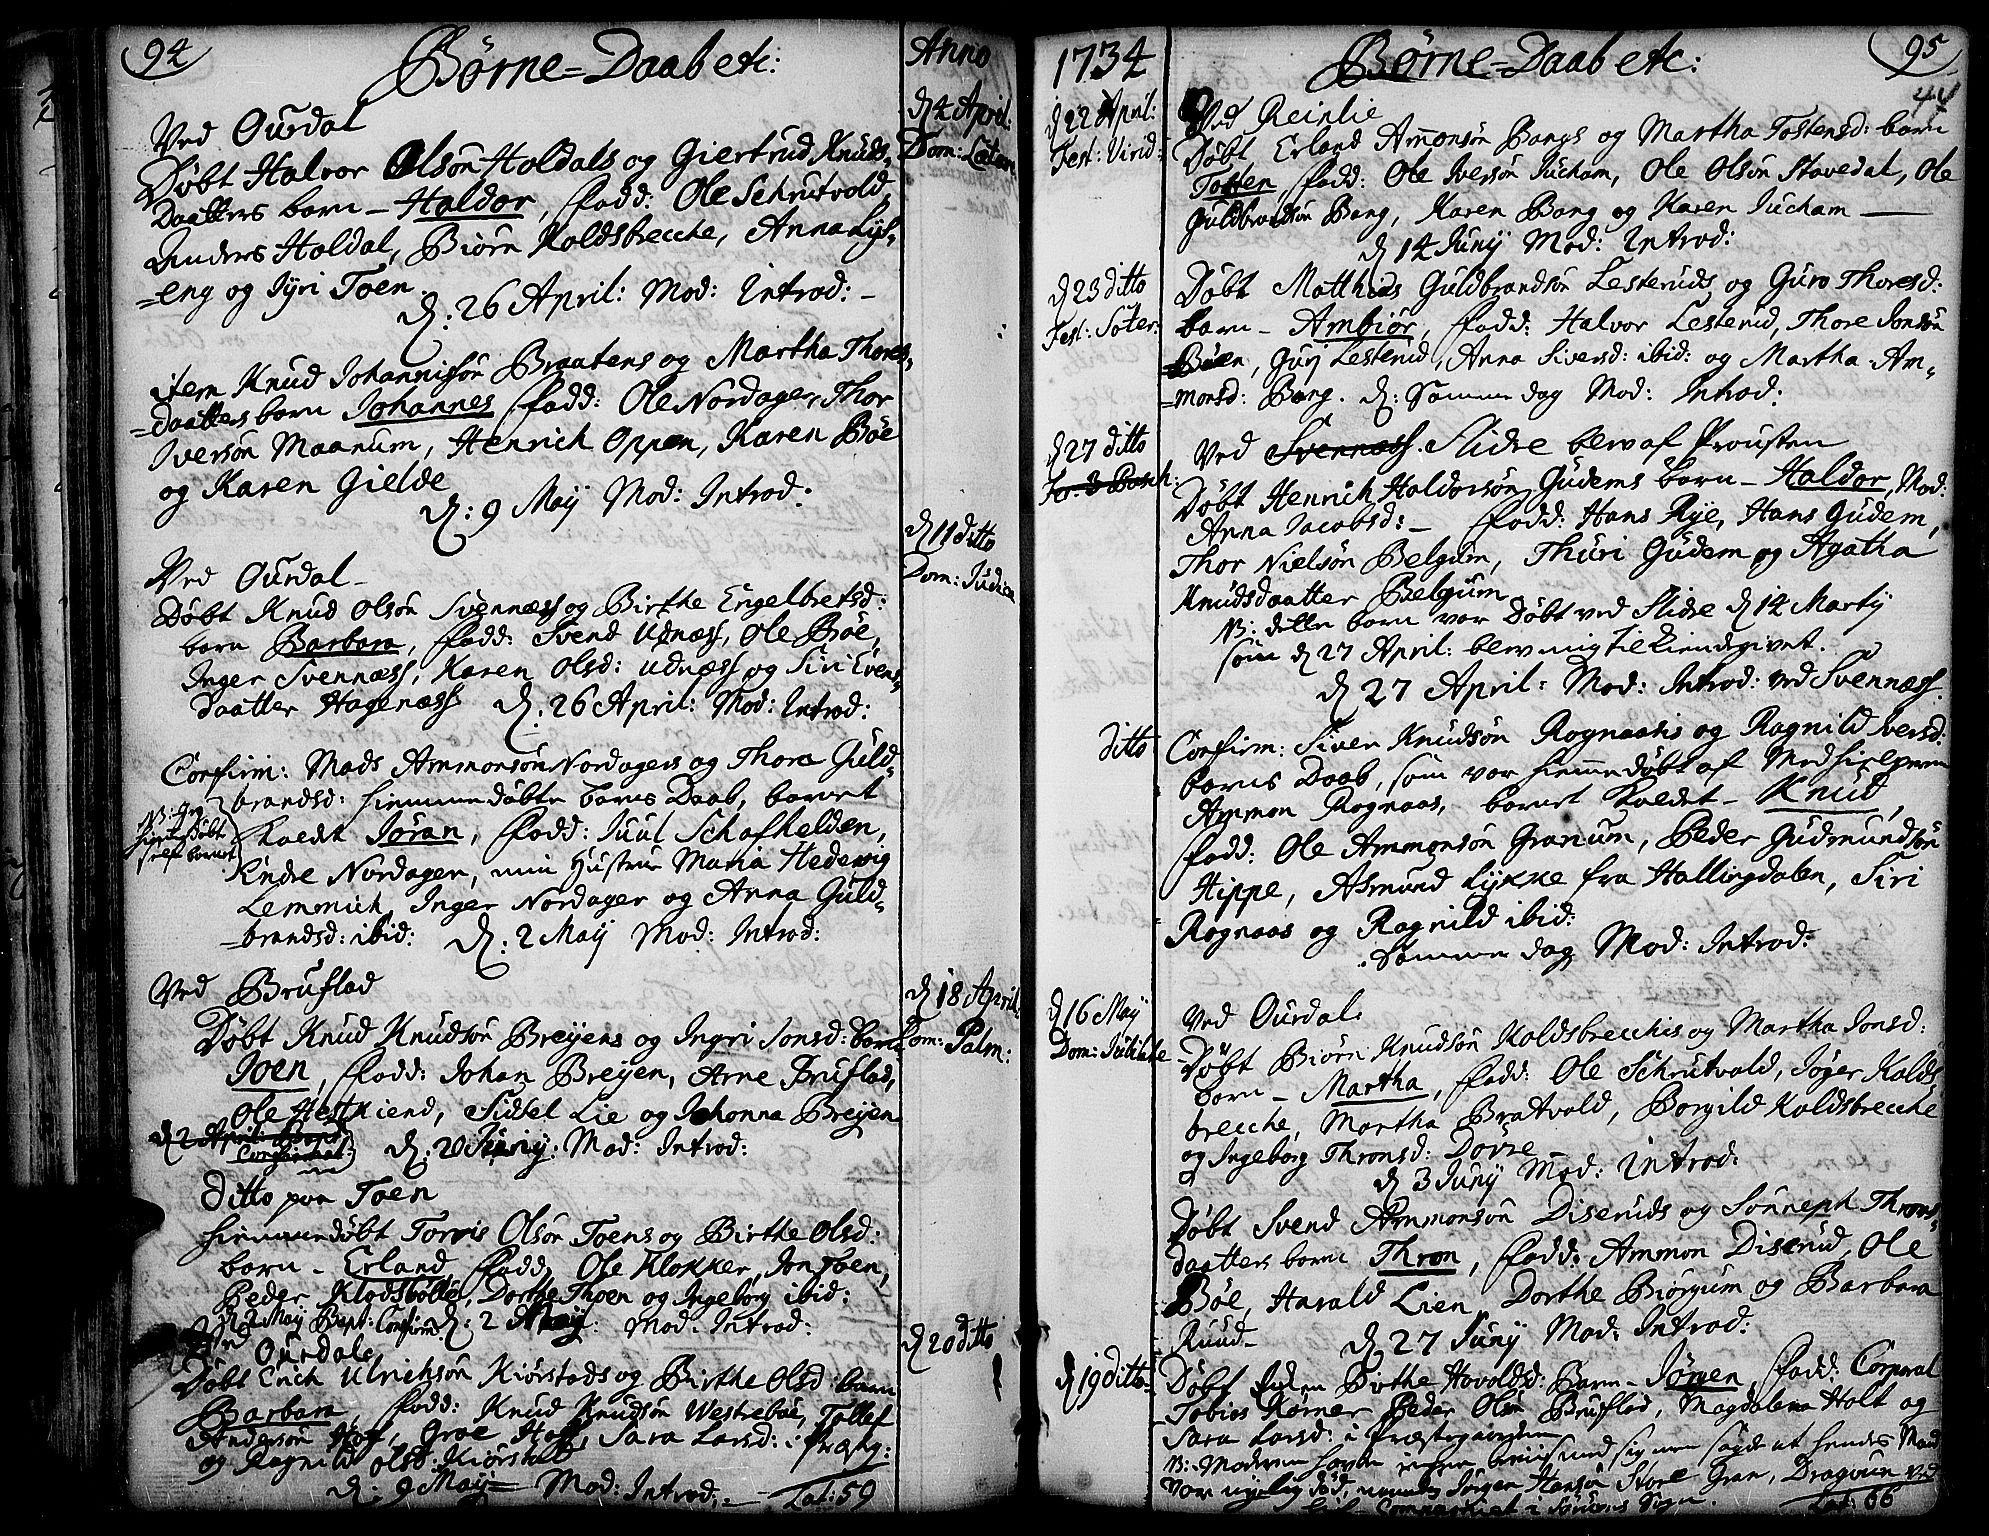 94
Børne-Daab etc:
Anno
d. 4 April:
Dom: Lætare
Ved Ourdal
Døbt Halvor Olsøn Holdals og Giertrud Knuds-
Daatters barn - Haldor, fadd: Ole Schrutvold,
Anders Holdal, Biørn Koldsbrecche, Anna Lys-
=eng og Jyri Toen.
d: 26 April: Mod: Introd: -
item Knud Johannisøn Braatens og Martha Thores-
=daatters barn Johannes fadd: Ole Nordager, Thor
Iversøn Maanum, Henrich Oppen, Karen Bøe
og Karen Gielde
d: 9 Maÿ Mod: Introd:
d. 11 ditto
Dom: Judica
Ved Ourdal -
Døbt Knud Olsøn Svennæss og Birthe Engelbretsd:
barn Barbara, fadd: Svend Udnæss, Ole Bøe,
Inger Svennæss, Karen Olsd: Udnæss og Siri Evens-
daatter Hagenæss d: 26 April: Mod: Introd:
Confirm: Mads Ammonsøn Nordagers og Thora Guld-
brandsd: hiemmedøbte barns Daab, barnet
NB: Jeg
hiemedøbt
self barnet
kaldt Jøran, fadd: Juul Schafhelden,
Endre Nordager, min Hustrue Maria Hedewig
Lemmich, Inger Nordager og Anna Guld-
=brandsd: ibid: d: 2 Maÿ Mod: Introd:
d. 18 April:
Dom: Palm:
Ved Bruflad
Døbt Knud Knudsøn Breÿens og Ingri Jonsd: barn
Joen, fadd: Johan Breÿen, Arne Bruflad,
Ole Hestkiend, Sidsel Lie og Johanna Breÿen
d. 2 April: Bapt:
Confirmat:
d: 20 Junÿ: Mod: Introd:
Ditto paa Toen
hiemmedøbt Torris Olsøn Toens og Birthe Olsd:
barn - Erland fadd, Ole Klokker, Jon Toen,
Peder Klodsbølle, Dorthe Thoen og Ingeborg ibid:
d. 2 Maÿ Bapt: Confirm: d: 2 Maÿ: Mod: Introd:
d. 20 ditto
Ved Ourdal
Døbt Erich Ulrichsøn Kiørstads og Birthe Olsd: barn
Barbara, fadd: Knud Knudsøn Westrebøe, Tollef
Andersøn Hof, Groe Hoff, Sara Larsd: i Præstg:
og Ragnild Olsd: Kiørstad
d: 9 Maÿ Mod: Introd: - Lat: 59
1734
Børne-Daab etc:
95
44
d. 22 April:
Fest: Virid:
Ved Reinlie
Døbt Erland Amonsøn Bangs og Martha Tostensd: barn
Tosten, fadd: Ole Iversøn Jucham, Ole Olsøn Stavedal, Ole
Guldbrandsøn Bang, Karen Bang og Karen Jucham
d. 14 Junÿ Mod: Introd:
d. 23 ditto
Fest: Soter:
Døbt Matthias Guldbrandsøn Lesteruds og Guro Thoresd:
barn - Ambiør, fadd: Halvor Lesterud, Thore Jonsøn
Bøen, Gurj Lesterud, Anna Siversd: ibid: og Martha Am-
=monsd: Bang. d: Samme dag Mod: Introd:
d. 27 ditto
Fer: 3 Pasch:
Ved Svennæss. Slidre blev af Prousten
Døbt Henrich Haldorsøn Gudems barn - Haldor, Mod:
Anna Jacobsd: - fadd: Hans Rye, Hans Gudem,
Thor Nielsøn Belgum, Thuri Gudem og Agatha
Knudsdaatter Belgum
NB: dette barn var Døbt ved Slidre d. 14 Martÿ
som d. 27 April: blev mig tilkiendegivet.
d. 27 April: Mod: Introd: ved Svennæss.
ditto
Confirm: Siver Knudsøn Rognaasis og Ragnild Iversd:
barns Daab, som var hiemmedøbt af Medhielperen
Ammon Rognaas, barnet kaldet - Knud,
fadd: Ole Ammonsøn Granum, Peder Gudmundsøn
Hippe, Asmund Lykke fra Hallingdalen, Siri
Rognaas og Ragnild ibid:
Samme dag Mod: Introd:
d. 16 Maÿ
Dom: Jubilate
Ved Ourdal.
Døbt Biørn Knudsøn Koldsbrecchis og Martha Jonsd:
barn - Martha, fadd: Ole Schrutvald, Jøger Kolds-
brecche, Martha Bratvold, Borgild Koldsbrecche
og Ingeborg Thronsd: Dovre
d. 3 Junÿ Mod: Introd:
Døbt Svend Ammonsøn Diseruds og Sønneph Throns-
daatters barn Thron, fadd: Ammon Diserud, Ole
Bøe, Harald Lien, Dorthe Biørgum og Barbara
Ruud - d. 27 Junÿ Mod: Introd:
d. 19 ditto
Døbt Enken Birthe Havoldsd: Barn - Jørgen, fadd: Corporal
Tobias Kørner, Peder Olsøn Bruflad, Magdalena Holt og
Sara Larsd: i Præstegaarden
NB: Moderen havde beviis med sig men sagde at hendes Mand
var nylig død, navnlig Jørgen Hansøn Store Gran, Dragoun ved
Compagniet i Sogn.
Lat: 66